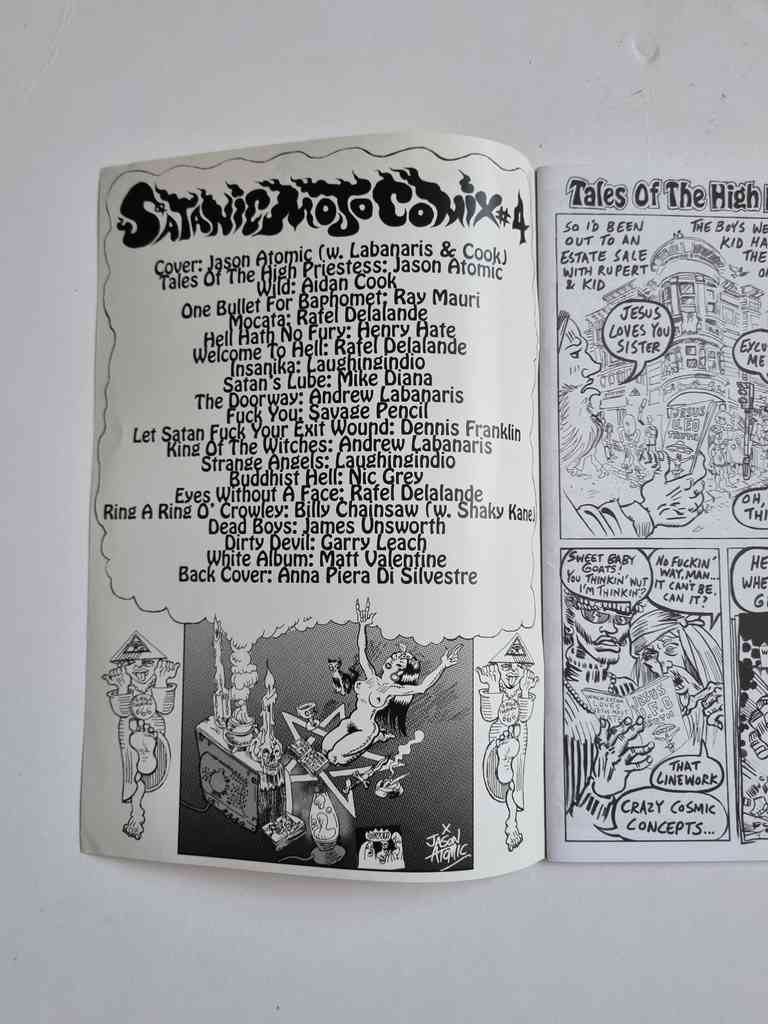 SATANIC MOJO COMIX #4
Cover: Jason Atomic (w. Labanaris & Cook)
Tales Of The High Priestess: Jason Atomic
Wild: Aidan Cook
One Bullet For Baphomet: Ray Mauri
Mocata: Rafel Delalande
Hell Hath No Fury: Henry Hate
Welcome To Hell: Rafel Delalande
Insanika: Laughingindio
Satan's Lube: Mike Diana
The Doorway: Andrew Labanaris
Fuck You: Savage Pencil
Let Satan Fuck Your Exit Wound: Dennis Franklin
King Of The Witches: Andrew Labanaris
Strange Angels: Laughingindio
Buddhist Hell: Nic Grey
Eyes Without A Face: Rafel Delalande
Ring A Ring O' Crowley: Billy Chainsaw (w. Shaky Kane)
Dead Boys: James Unsworth
Dirty Devil: Garry Leach
White Album: Matt Valentine
Back Cover: Anna Piera Di Silvestre
666
666
X
JASON
ATOMIC
Tales Of The High
SO I'D BEEN
OUT TO AN
ESTATE SALE
WITH RUPERT
& KID
THE BOYS WE
KID HA
THE
JESUS
LOVES YOU
SISTER
ME
JESUS
OH,
THI
SWEET BABY
GOATS!
YOU THINKIN' WUT
I'M THINKIN'?
NO FUCKIN'
WAY, MAN...
IT CAN'T BE,
CAN IT?
HE
WHE
G
JESUS
THAT
LINEWORK
CRAZY COSMIC
CONCEPTS...